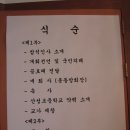 식 순
<제1부>
- 참석인사 소개
- 개회선언 및 국민의례
- 공로패 전달
- 개 회 사 (총동창회장)
- 축 사
- 신성초등학교 약력 소개
- 교가 제창
<제2부>